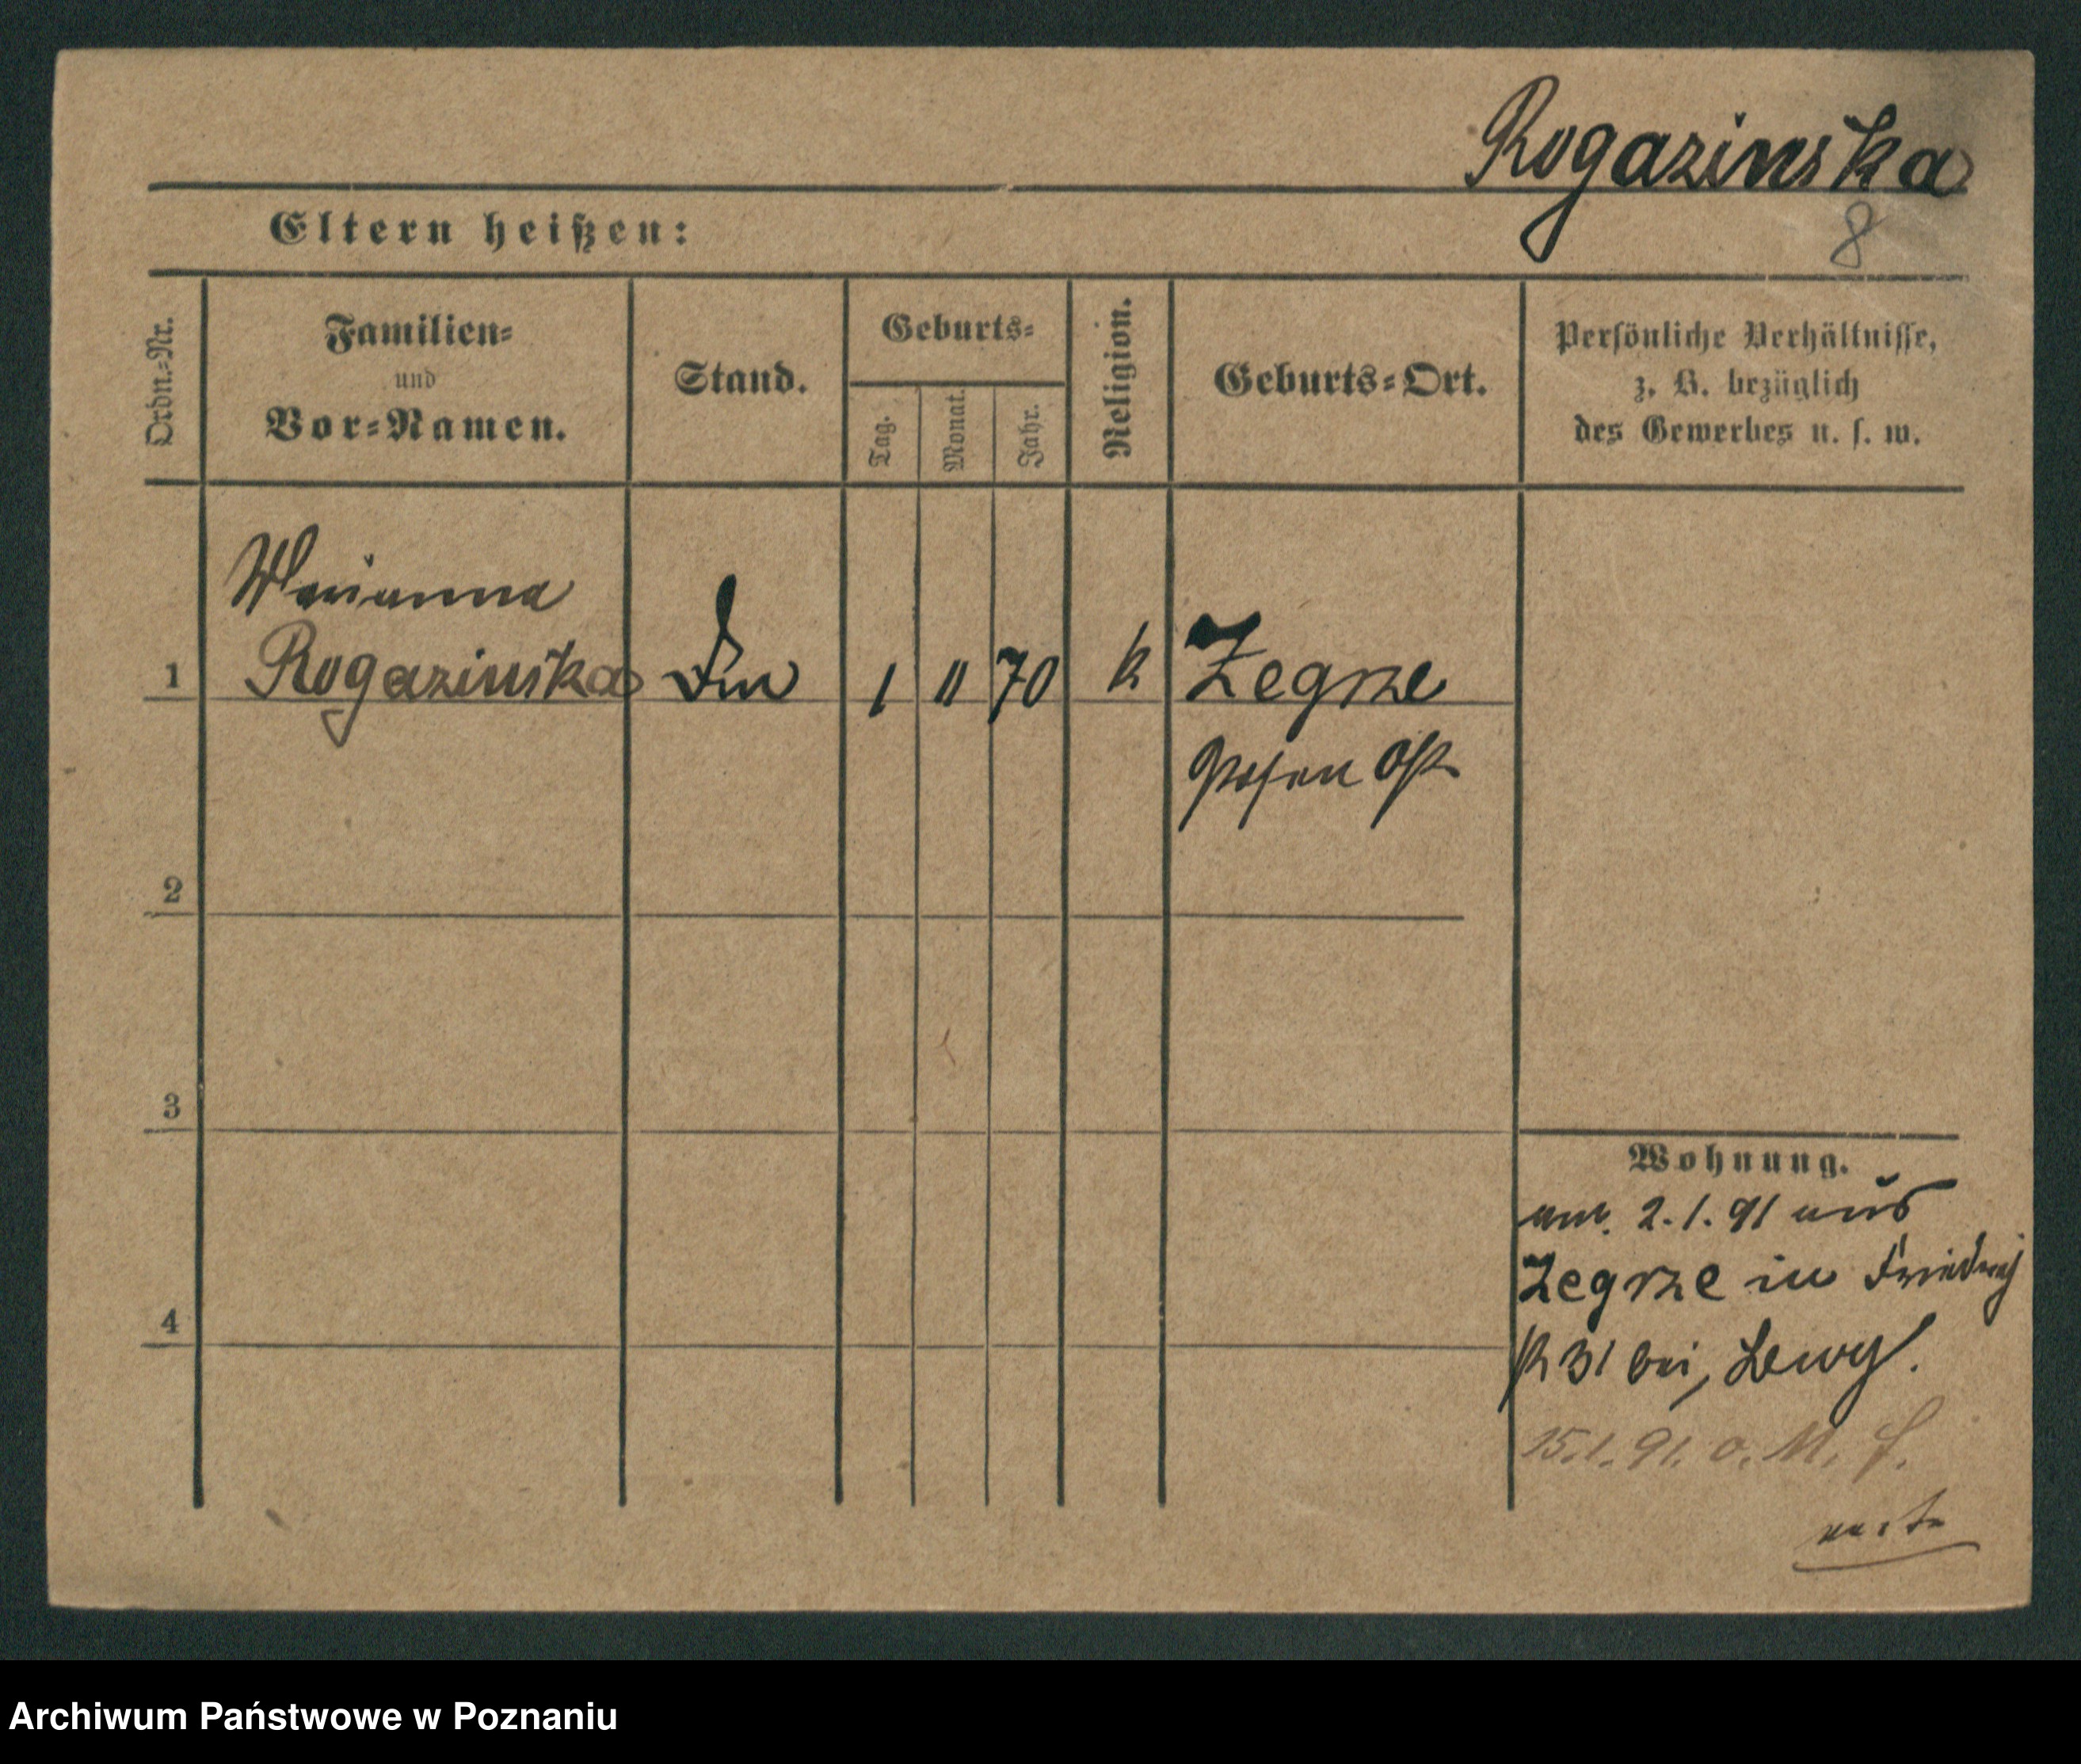 Rogazinska
8
Eltern heißen:
Ordn.-Nr.
Familien-
und
Vor-Namen.
Stand.
Geburts-
Tag.
Monat.
Jahr.
Religion.
Geburts-Ort.
Persönliche Verhältnisse,
z. B. bezüglich
des Gewerbes u. s. w.
Marianna
1 Rogazinska 1 11 70 k Zegrze
Posen Ost
2
3
4
Wohnung.
2.1.91 aus
Zegrze in Friedrich
31 bei Lewy.
15.1.91. o. M. f.
Archiwum Państwowe w Poznaniu